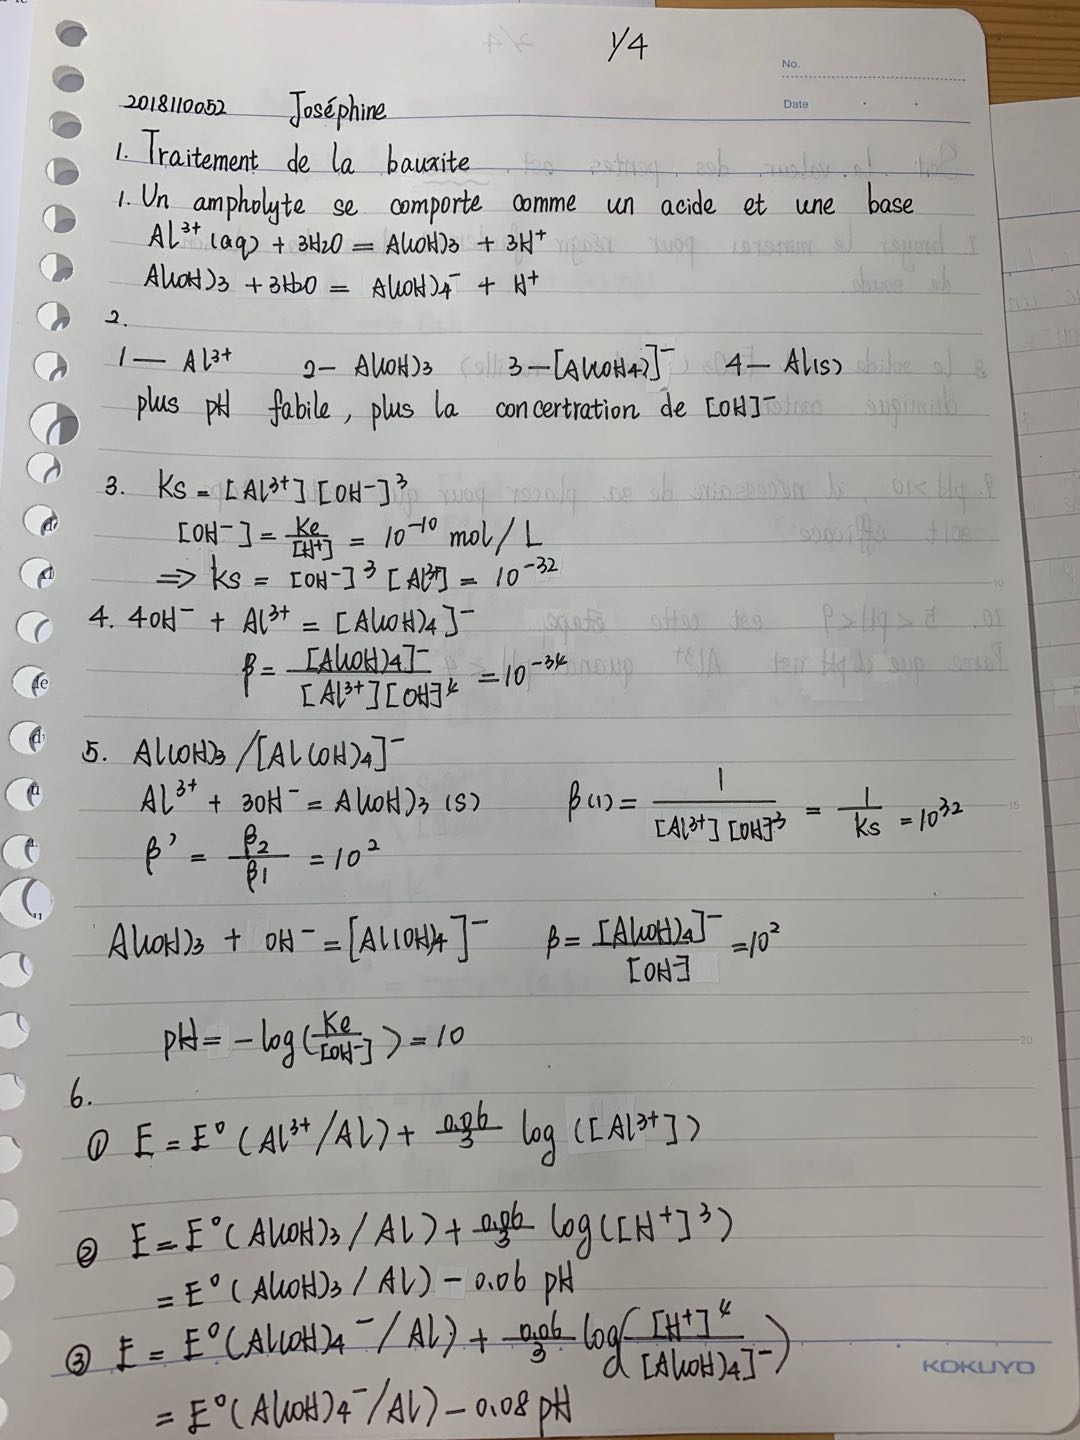 1/4
No.
Date
2018110052 Joséphine
1. Traitement de la bauxite
1. Un ampholyte se comporte comme un acide et une base
Al³⁺(aq) + 3H₂O = Al(OH)₃ + 3H⁺
Al(OH)₃ + 3H₂O = Al(OH)₄⁻ + H⁺
2.
1 — Al³⁺ 2 — Al(OH)₃ 3 — [Al(OH₄)]⁻ 4 — Al(s)
plus pH fabile, plus la concertration de [OH]⁻
3. Ks = [Al³⁺][OH⁻]³
[OH⁻] = Ke/[H⁺] = 10⁻¹⁰ mol/L
⇒ ks = [OH⁻]³ [Al³⁺] = 10⁻³²
4. 4OH⁻ + Al³⁺ = [Al(OH)₄]⁻
β = [Al(OH)₄]⁻/[Al³⁺][OH]⁴ = 10⁻³⁴
5. Al(OH)₃/[Al(OH)₄]⁻
Al³⁺ + 3OH⁻ = Al(OH)₃(s) β(1) = 1/[Al³⁺][OH]³ = 1/Ks = 10³²
β' = β₂/β₁ = 10²
Al(OH)₃ + OH⁻ = [Al(OH)₄]⁻ β = [Al(OH)₄]⁻/[OH] = 10²
pH = -log(Ke/[OH⁻]) = 10
6.
① E = E°(Al³⁺/Al) + 0.06/3 log([Al³⁺])
② E = E°(Al(OH)₃/Al) + 0.06/3 log([H⁺]³)
= E°(Al(OH)₃/Al) - 0.06 pH
③ E = E°(Al(OH)₄⁻/Al) + 0.06/3 log([H⁺]⁴/[Al(OH)₄]⁻)
= E°(Al(OH)₄⁻/Al) - 0.08 pH
KOKUYO